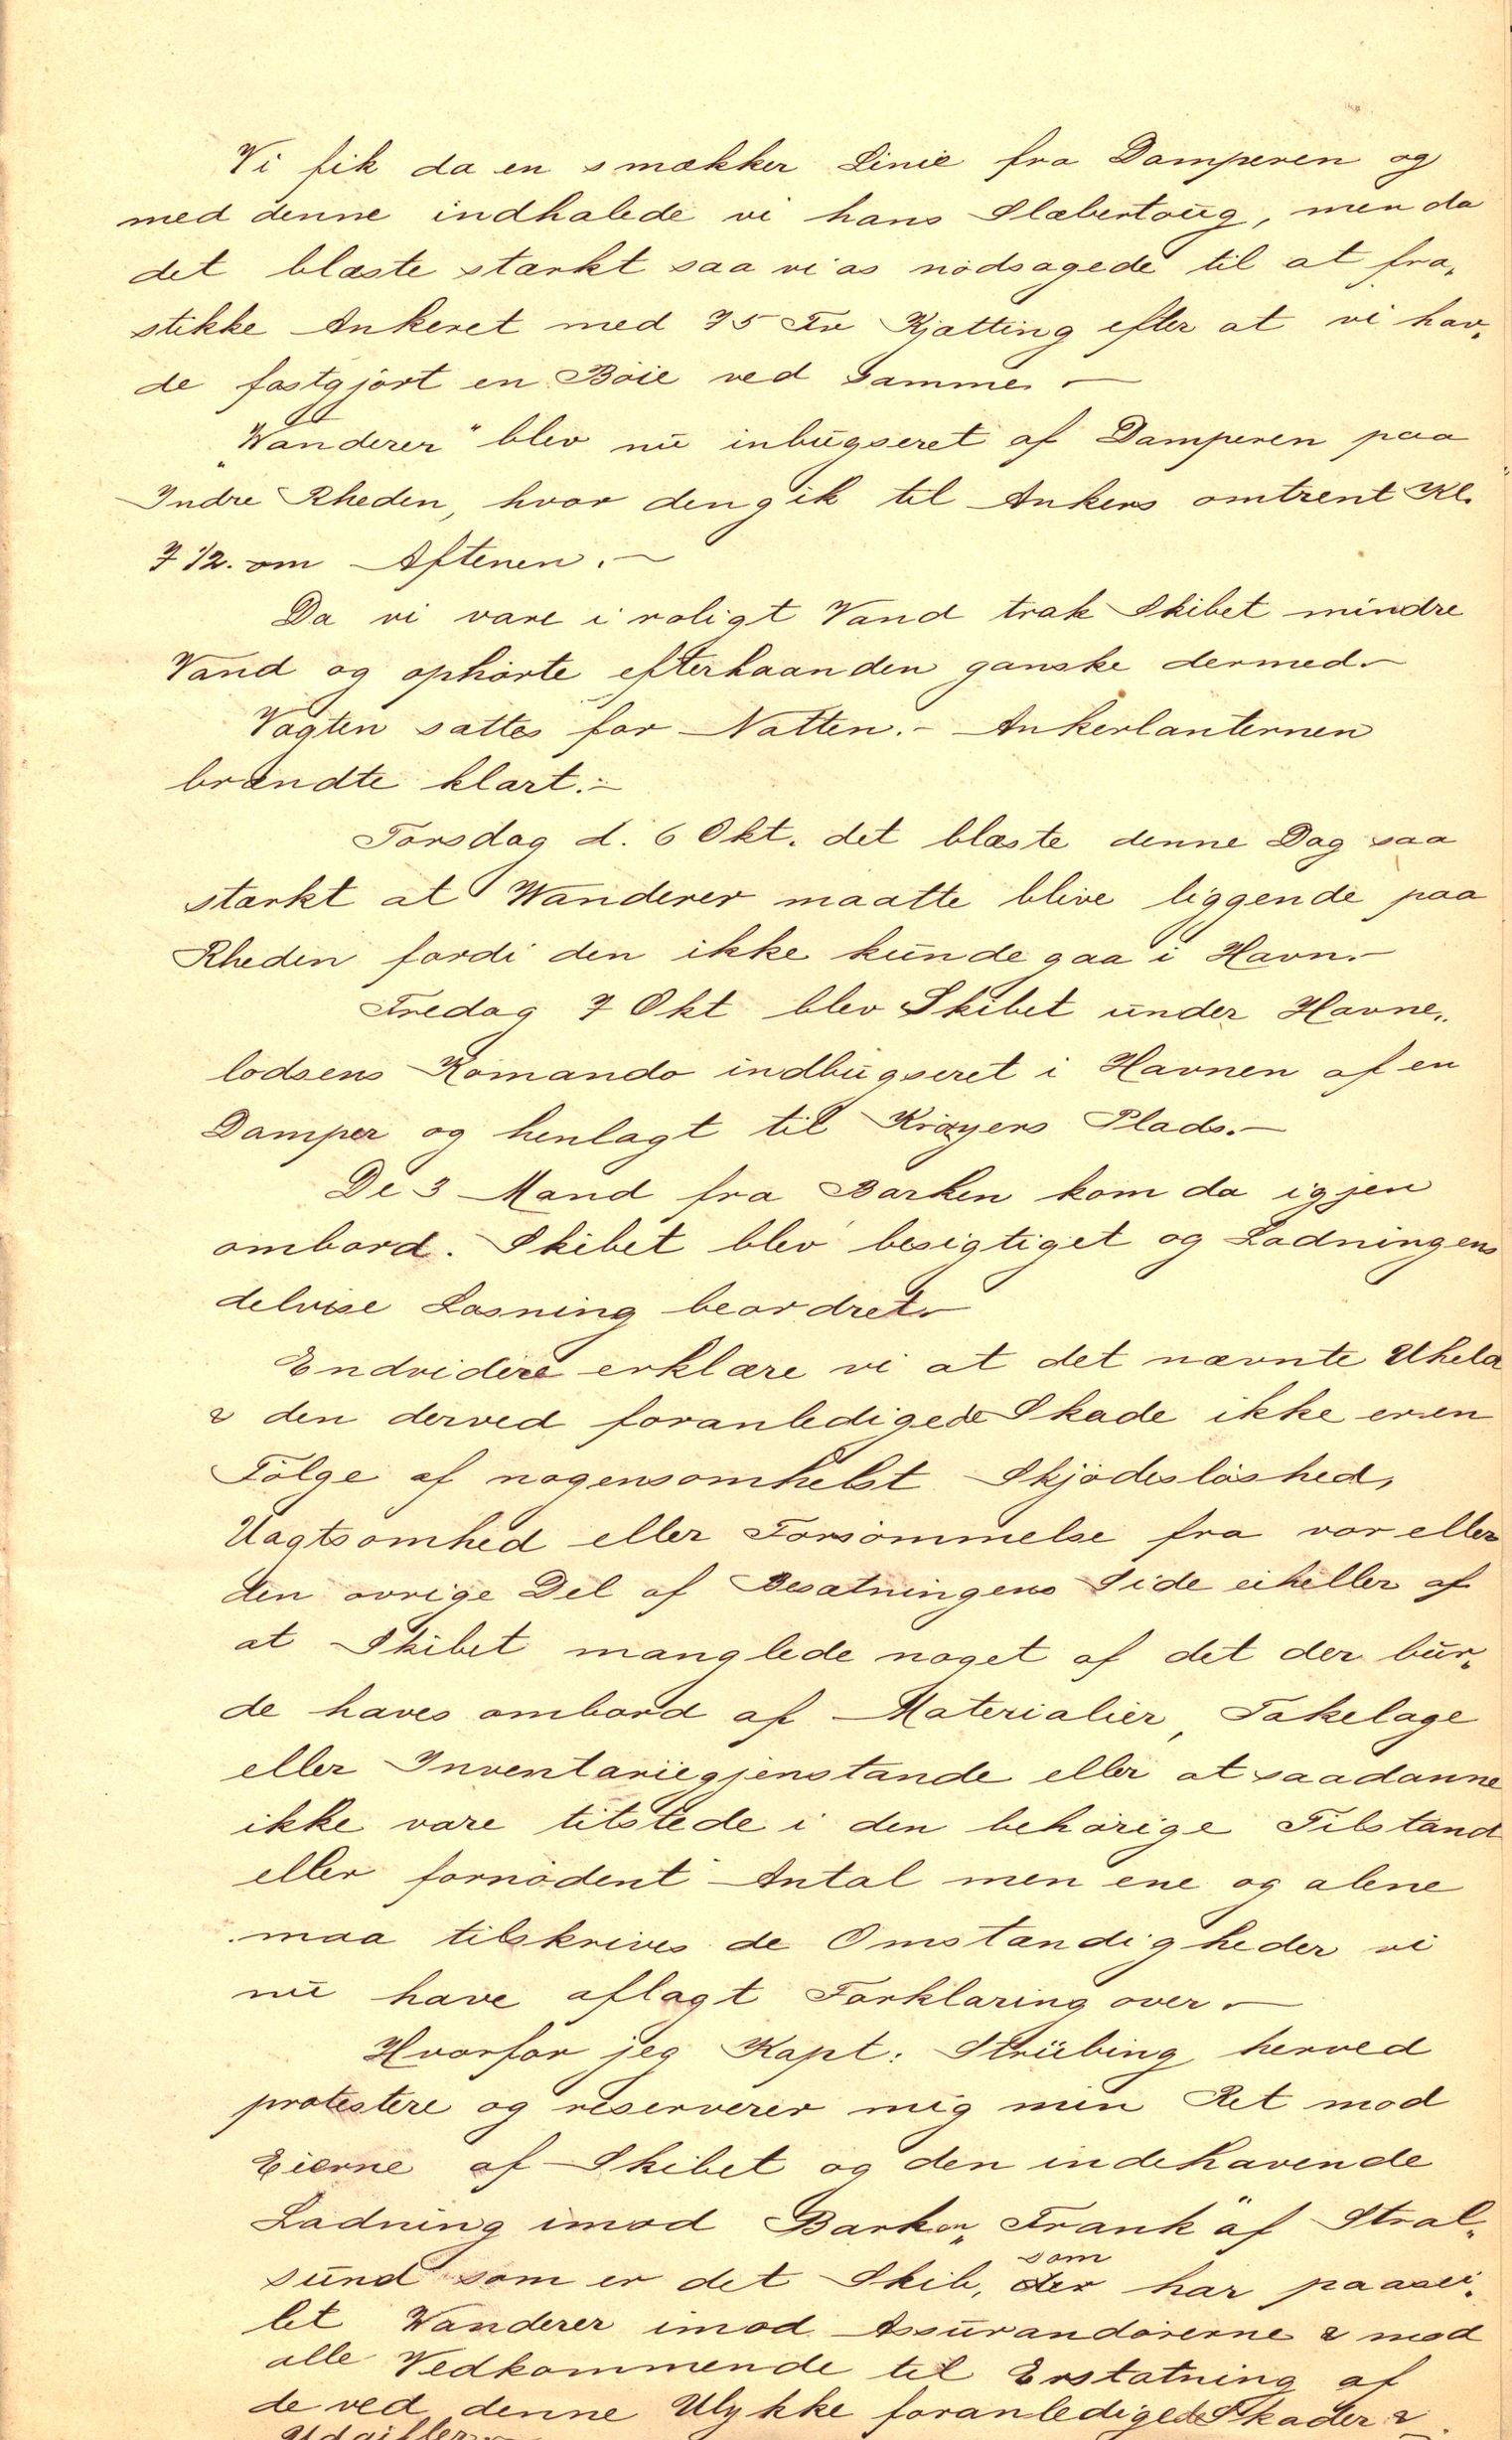 Vi fik da en smækker Linie fra Damperen og
med denne indhalede vi hans Slæbertoug, men da
det blæste stærkt saa vi as nödsagede til at fra„
stikke Ankeret med 75 Fv Kjætting efter at vi hav„
de fastgjört en Böie ved samme. —
„Wanderer" blev nu inbugseret af Damperen paa
Indre Rheden, hvor den gik til Ankers omtrent Kl.
7 1/2. om Aftenen. —
Da vi vare i roligt Vand trak Skibet mindre
Vand og ophörte efterhaanden ganske dermed. —
Vagten sattes for Natten. – Ankerlanternen
brændte klart. –
Torsdag d. 6 Okt. det blæste denne Dag saa
stærkt at Wanderer maatte blive liggende paa
Rheden fordi den ikke kunde gaa i Havn. –
Fredag 7 Okt blev Skibet under Havne„
lodsens Komando indbugseret i Havnen af en
Damper og henlagt til Kröyers Plads. —
De 3 Mand fra Barken kom da igjen
ombord. Skibet blev besigtiget og Ladningens
delvise Losning beordret. —
Endvidere erklære vi at det nævnte Uheld
& den derved foranledigede Skade ikke er en
Fölge af nogensomhelst Skjödeslöshed,
Uagtsomhed eller Forsömmelse fra vor eller
den ovrige Del af Besætningens Side eiheller af
at Skibet manglede noget af det der bur„
de haves ombord af Materialier, Takelage
eller Inventariegjenstande eller at saadanne
ikke vare tilstede i den behörige Tilstand
eller fornödent Antal men ene og alene
maa tilskrives de Omstændigheder vi
nu have aflagt Forklaring over. —
Hvorfor jeg Kapt: Strübing herved
protestere og reserverer mig min Ret mod
Eierne af Skibet og den indehavende
Ladning imod Barken „Frank" af Stral„
sund som er det Skib, som der har paasei„
let Wanderer imod Assurandörerne & mod
alle Vedkommende til Erstatning af
de ved denne Ulykke foranledigede Skader &
Udgifter